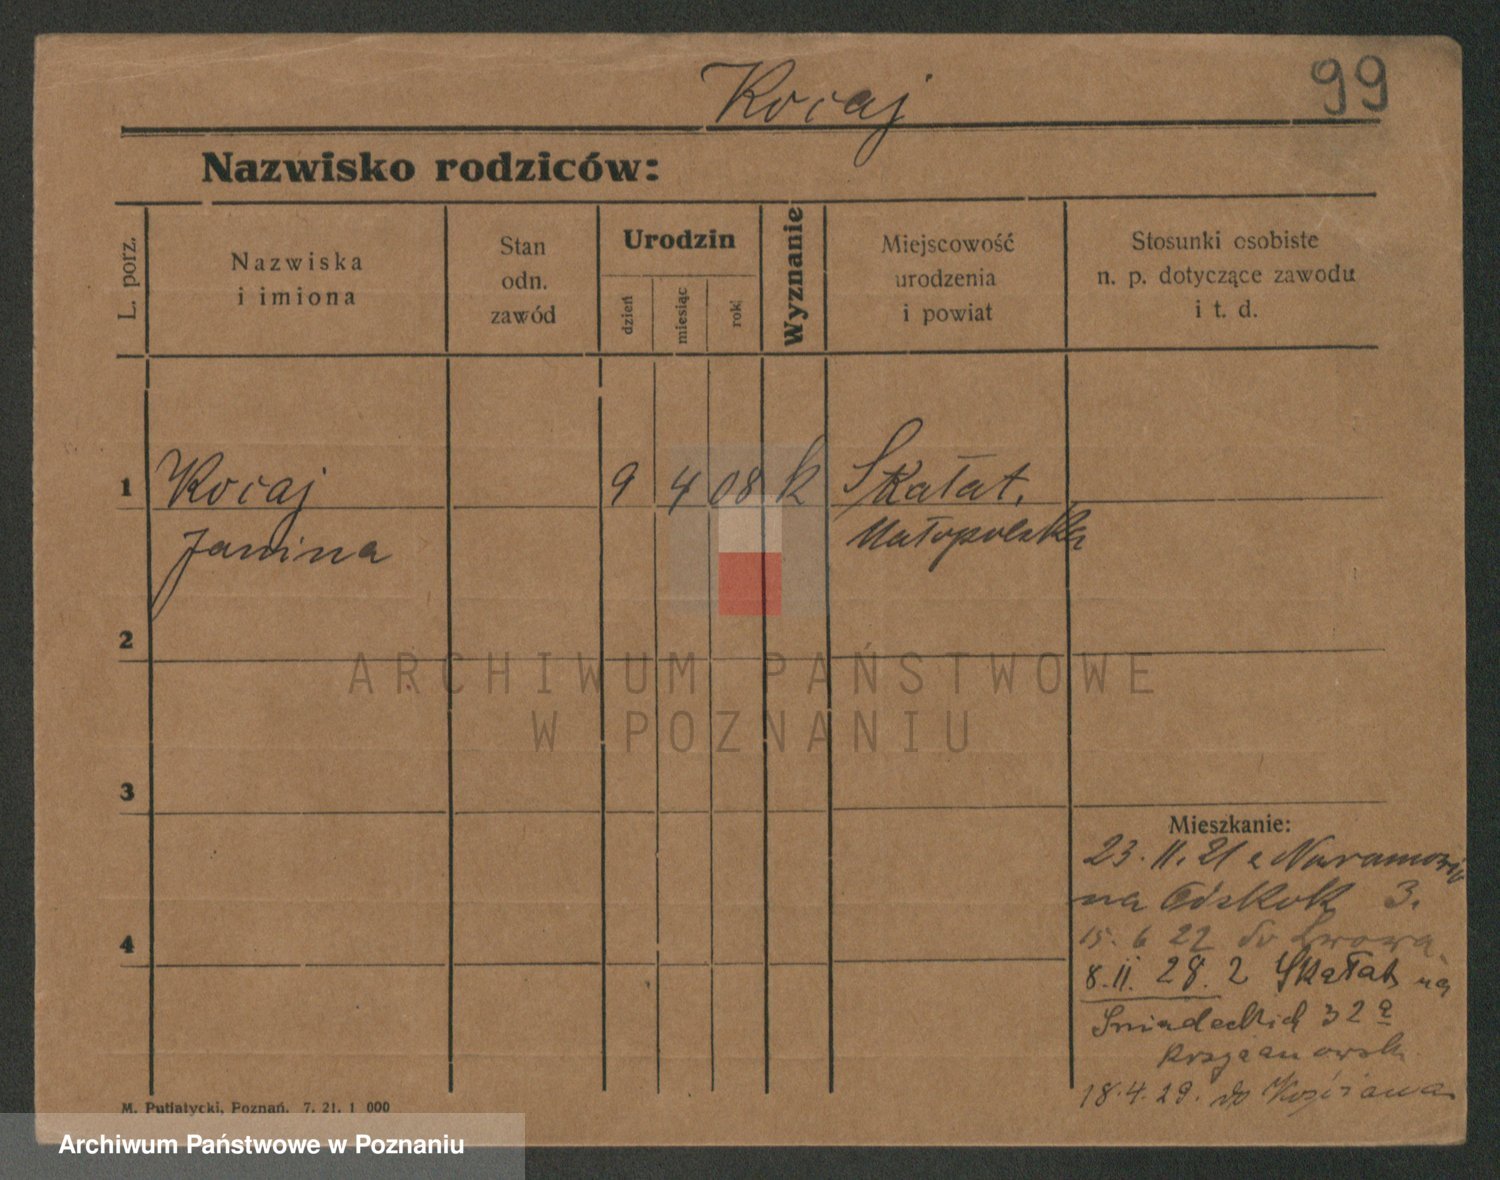 Kocaj
99
Nazwisko rodziców:
L. porz.
Nazwiska
i imiona
Stan
odn.
zawód
Urodzin
dzień
miesiąc
rok
Wyznanie
Miejscowość
urodzenia
i powiat
Stosunki osobiste
n. p. dotyczące zawodu
i t. d.
1
Kocaj
Janina
9 4 08 k
Skałat,
Małopolska
2
ARCHIWUM PAŃSTWOWE
W POZNANIU
3
4
Mieszkanie:
23. II. 21 z
na 3.
15. 6 22 do Lwowa
8. II. 28. z Skałat na
Śniadeckich 32 a
18. 4. 29. do
M. Putiatycki, Poznań. 7. 21. 1 000
Archiwum Państwowe w Poznaniu